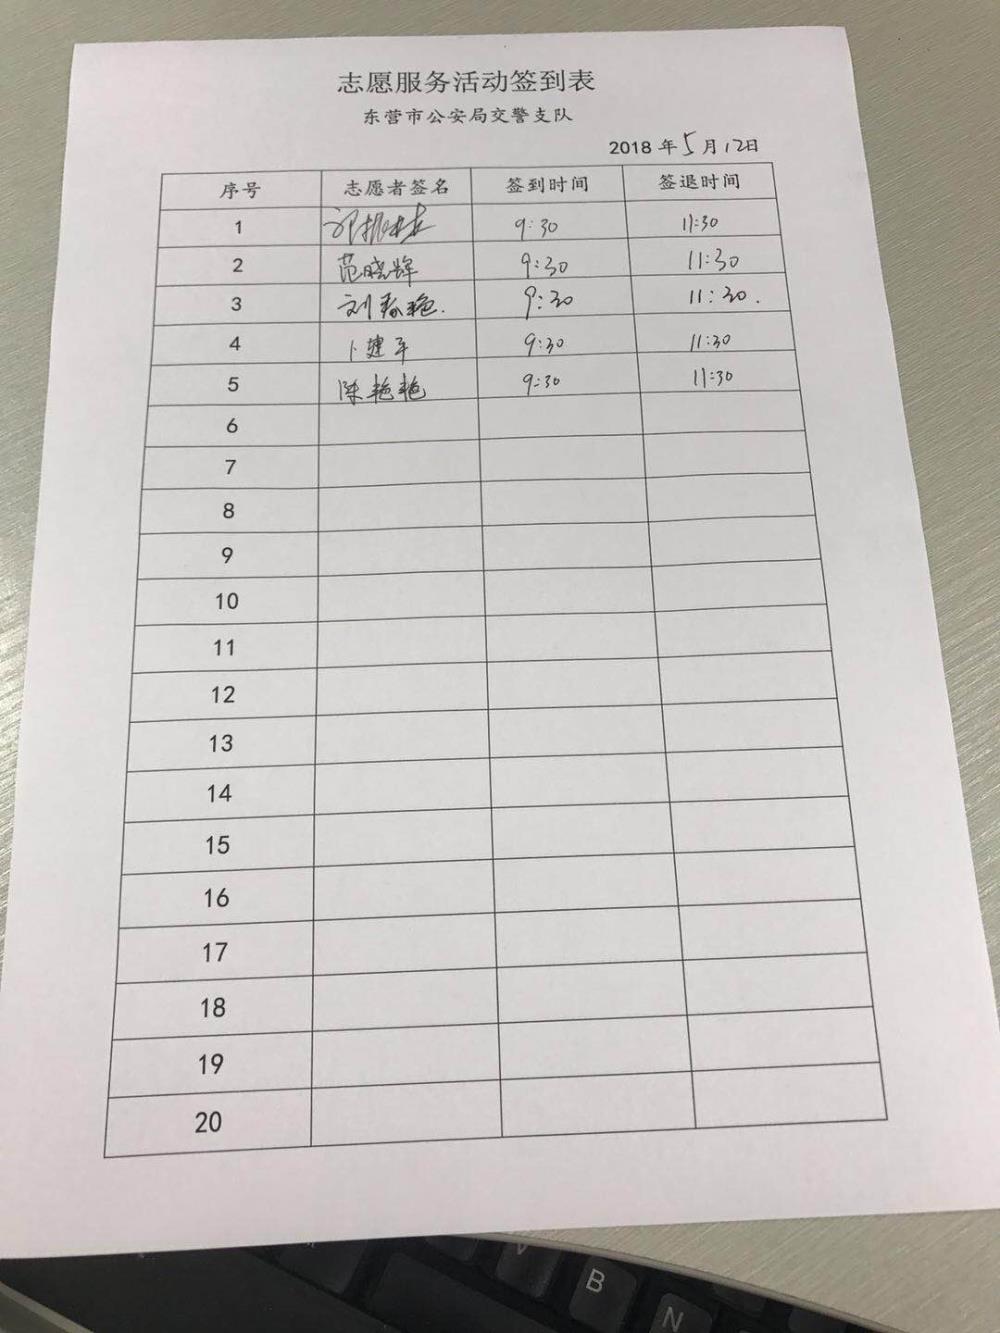 志愿服务活动签到表
东营市公安局交警支队
2018 年 5 月 12日
序号 志愿者签名 签到时间 签退时间
1 9:30 11:30
2 范晓辉 9:30 11:30
3 刘春艳. 9:30 11:30.
4 卜建军 9:30 11:30
5 陈艳艳 9:30 11:30
6
7
8
9
10
11
12
13
14
15
16
17
18
19
20
V
B
N